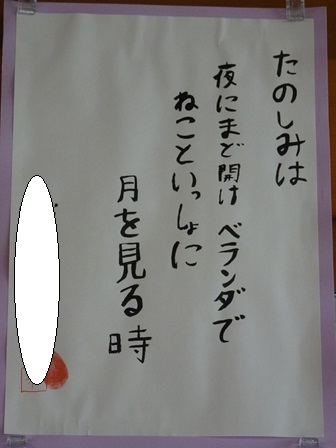 たのしみは
夜にまど開け ベランダで
ねこといっしょに
月を見る時